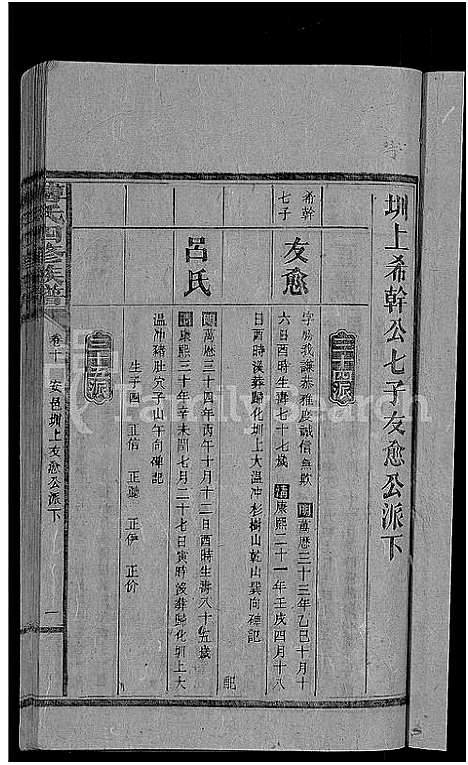 圳上希幹公七子友愈公派下
三十四派
希幹
七子
友愈
字勝我謙恭雅度誠信無欺 明 萬歷三十三年乙巳十月十
六日酉時生壽七十七歲 清 康熙二十一年壬戌四月十八
日酉時後葬歸化圳上大温冲杉樹山乾山巽向碑記
配
呂氏
明 萬歷三十四年丙午十月十二日酉時生壽八十五歲
清 康熙三十年辛未閏七月二十七日寅時後葬歸化圳上大
温冲豬肚穴子山午向碑記
生子四 正信 正 正伊 正价
三十五派
氏四修族譜
卷十 安邑圳上友愈公派下
一
FamilySearch